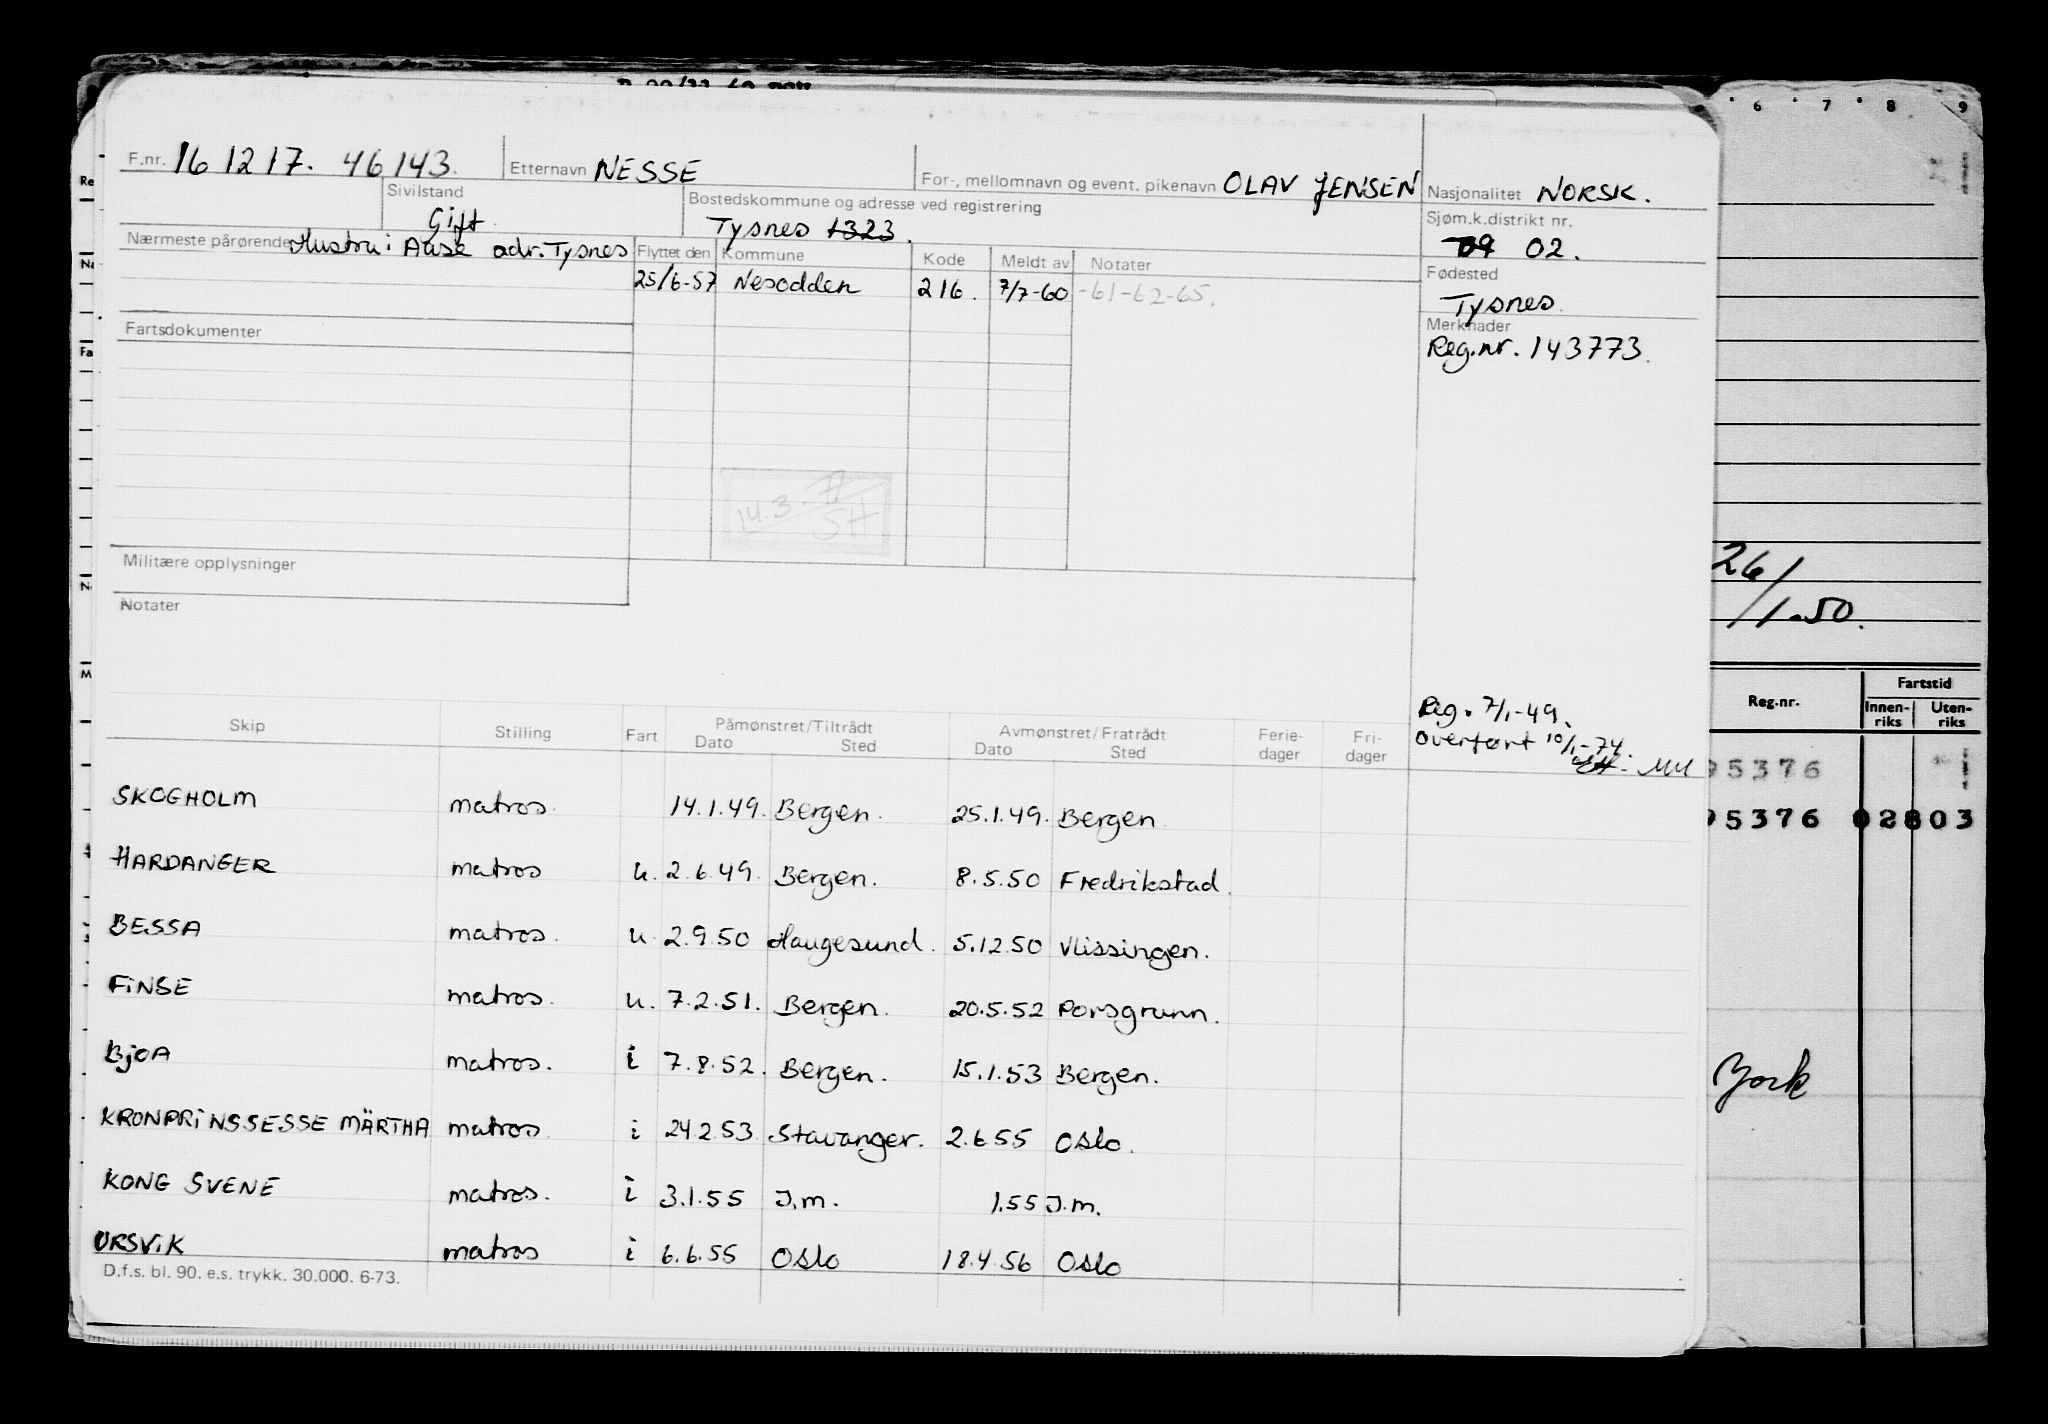 F.nr. 16 12 17. 46 143. Etternavn NESSE For-, mellomnavn og event. pikenavn OLAV JENSEN Nasjonalitet NORSK.
Sivilstand Gift Bostedskommune og adresse ved registrering Tysnes 1323. Sjøm.k.distrikt nr. 09 02.
Nærmeste pårørende Hustru: Aase adr. Tysnes Flyttet den Kommune Kode Meldt av Notater Fødested Tysnes.
25/6-57 Nesodden 216. 7/7-60 -61-62-65.
Fartsdokumenter Merknader
Reg.nr. 143773.
14.3.77
SH
Militære opplysninger
Notater
Reg. 7/1-49.
Overført 10/1-74.
Skip Stilling Fart Påmønstret/Tiltrådt Dato Sted Avmønstret/Fratrådt Dato Sted Feriedager Fridager
SKOGHOLM matros. 14.1.49. Bergen. 25.1.49. Bergen
HARDANGER matros u. 2.6.49. Bergen. 8.5.50 Fredrikstad.
BESSA matros. u. 2.9.50 Haugesund. 5.12.50 Vlissingen.
FINSE matros. u. 7.2.51. Bergen. 20.5.52 Porsgrunn.
BJOA matros. i 7.8.52. Bergen. 15.1.53 Bergen.
KRONPRINSSESSE MÄRTHA matros i 24.2.53 Stavanger. 2.6.55 Oslo.
KONG SVENE matros. i 3.1.55 J.m. 1.55 J.m.
URSVIK matros i 6.6.55 Oslo 18.4.56 Oslo
D.f.s. bl. 90. e.s. trykk. 30.000. 6-73.
6 7 8 9
26/1-50.
Reg.nr. Fartstid
Innenriks Utenriks
95376
95376 02803
York